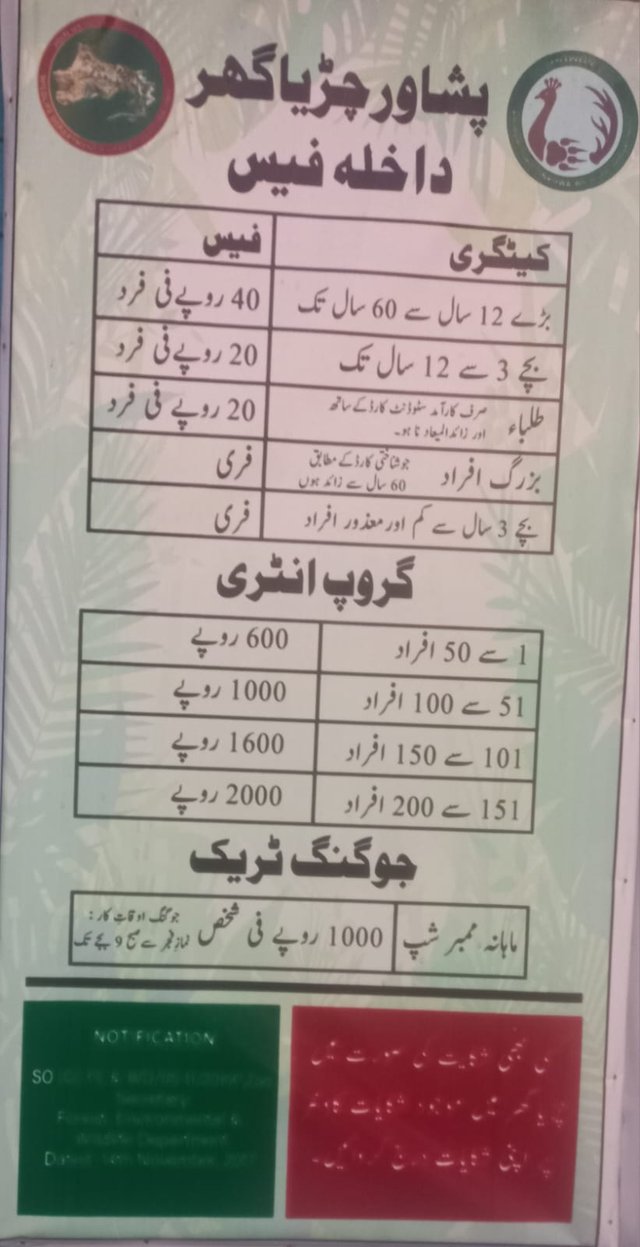 پشاور چڑیا گھر
داخلہ فیس
کیٹگری فیس
بڑے 12 سال سے 60 سال تک 40 روپے فی فرد
بچے 3 سے 12 سال تک 20 روپے فی فرد
طلباء صرف کارآمد سٹوڈنٹ کارڈ کے ساتھ اور زائدالمیعاد نا ہو۔ 20 روپے فی فرد
بزرگ افراد جو شناختی کارڈ کے مطابق 60 سال سے زائد ہوں فری
بچے 3 سال سے کم اور معذور افراد فری
گروپ انٹری
1 سے 50 افراد 600 روپے
51 سے 100 افراد 1000 روپے
101 سے 150 افراد 1600 روپے
151 سے 200 افراد 2000 روپے
جوگنگ ٹریک
ماہانہ ممبر شپ 1000 روپے فی شخص جوگنگ اوقات کار: نماز فجر سے صبح 9 بجے تک
NOTIFICATION
SO
Secretary
Forest, Environmental &
Wildlife Department
شکایت کی صورت میں
میں موجود شکایات
اپنی شکایات درج کروائیں۔